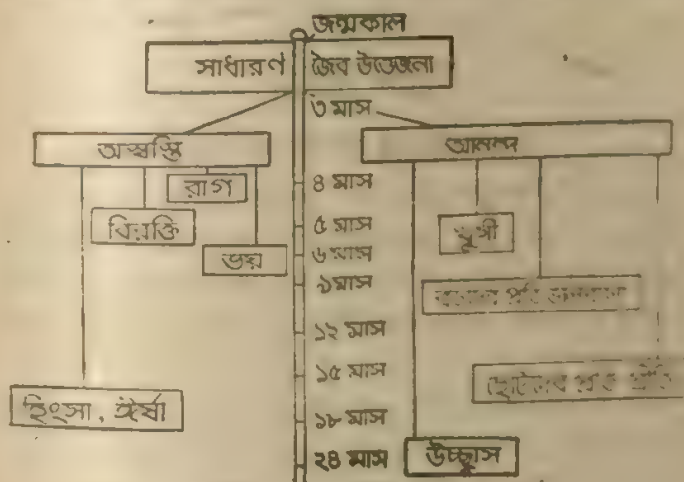 জন্মকাল
সাধারণ জৈব উত্তেজনা
৩ মাস
অস্বস্তি
আনন্দ
রাগ
৪ মাস
বিরক্তি
৫ মাস
খুশী
ভয়
৬ মাস
৯ মাস
বড়দের প্রতি ভালবাসা
১২ মাস
১৫ মাস
ছোটদের প্রতি প্রীতি
হিংসা, ঈর্ষা
১৮ মাস
২৪ মাস
উচ্ছ্বাস